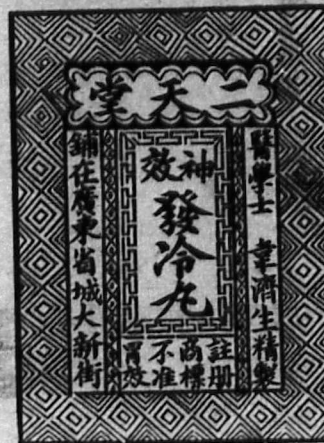 二天堂
醫學士 韋濟生精製
神效
發冷丸
註册
商標
不准
冒效
鋪在廣東省城大新街